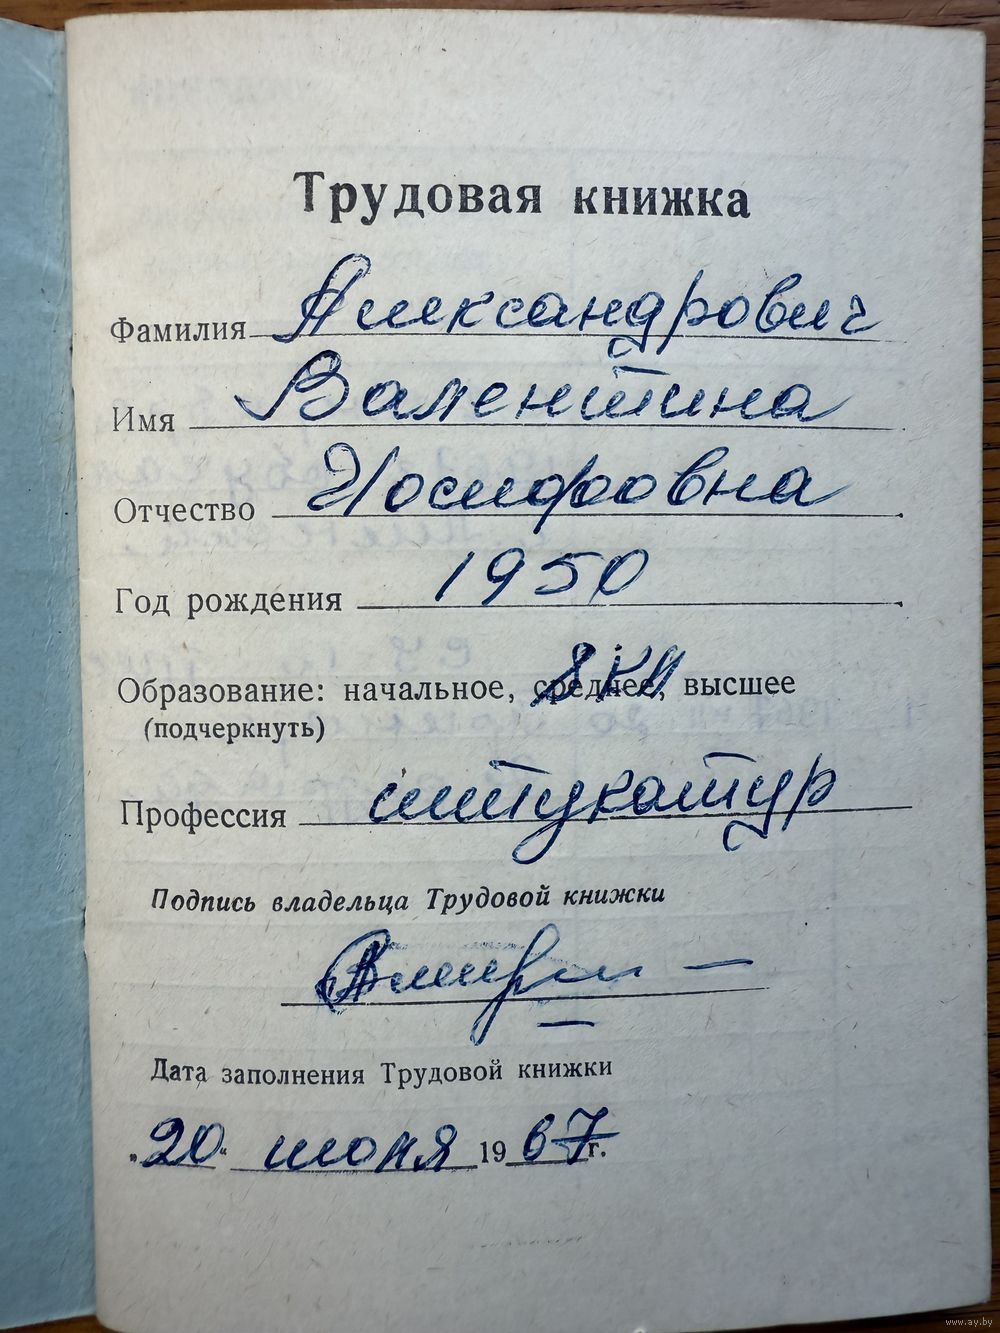 Трудовая книжка
Фамилия Александрович
Имя Валентина
Отчество Иосифовна
Год рождения 1950
Образование: начальное, среднее, высшее
8 кл
(подчеркнуть)
Профессия штукатур
Подпись владельца Трудовой книжки
Дата заполнения Трудовой книжки
„20“ июня 1967 г.
www.ay.by